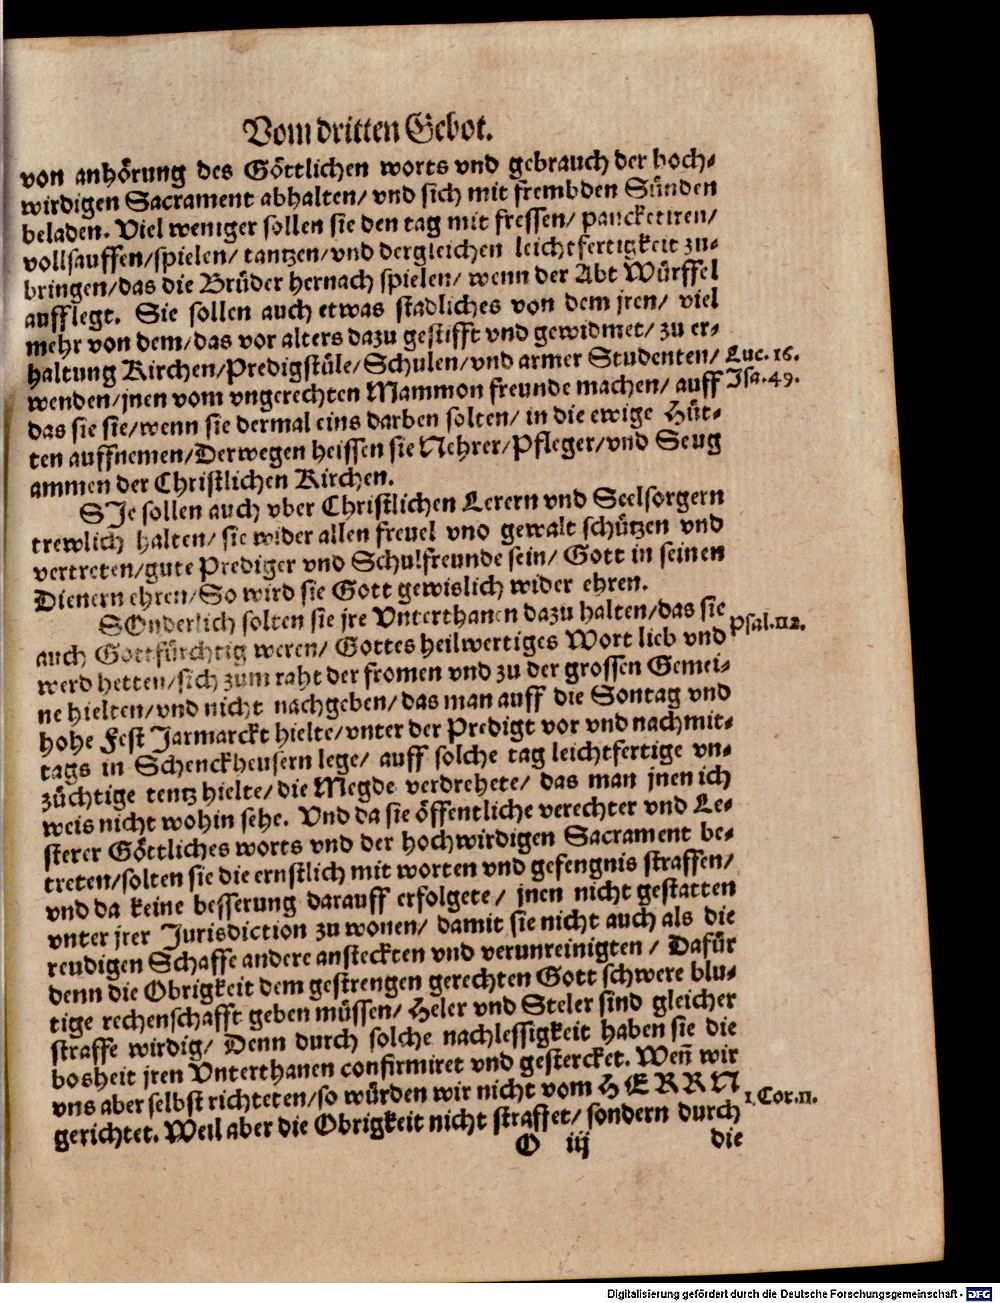 Vom dritten Gebot.
von anhörung des Göttlichen worts vnd gebrauch der hoch-
wirdigen Sacrament abhalten/ vnd sich mit frembden Sünden
beladen. Viel weniger sollen sie den tag mit fressen/ pancketiren/
vollsauffen/spielen/ tantzen/vnd dergleichen leichtfertigkeit zu-
bringen/das die Brüder hernach spielen/ wenn der Abt Würffel
aufflegt. Sie sollen auch etwas stadliches von dem jren/ viel
mehr von dem/das vor alters dazu gestifft vnd gewidmet/ zu er-
haltung Kirchen/Predigstüle/Schulen/vnd armer Studenten/ Luc.16.
wenden/jnen vom vngerechten Mammon freunde machen/ auff Jsa.49.
das sie sie/wenn sie dermal eins darben solten/ in die ewige Hüt-
ten auffnemen/Derwegen heissen sie Nehrer/Pfleger/vnd Seug
ammen der Christlichen Kirchen.
SJe sollen auch vber Christlichen Lerern vnd Seelsorgern
trewlich halten/ sie wider allen freuel vnd gewalt schützen vnd
vertreten/gute Prediger vnd Schulfreunde sein/ Gott in seinen
Dienern ehren/So wird sie Gott gewislich wider ehren.
SOnderlich solten sie jre Vnterthanen dazu halten/das sie Psal.112.
auch Gottfürchtig weren/ Gottes heilwertiges Wort lieb vnd
werd hetten/sich zum raht der fromen vnd zu der grossen Gemei-
ne hielten/vnd nicht nachgeben/das man auff die Sontag vnd
hohe Fest Jarmarckt hielte/vnter der Predigt vor vnd nachmit-
tags in Schenckheusern lege/ auff solche tag leichtfertige vn-
züchtige tentz hielte/die Megde verdrehete/ das man jnen ich
weis nicht wohin sehe. Vnd da sie öffentliche verechter vnd Le-
sterer Göttliches worts vnd der hochwirdigen Sacrament be-
treten/solten sie die ernstlich mit worten vnd gefengnis straffen/
vnd da keine besserung darauff erfolgete/ jnen nicht gestatten
vnter jrer Jurisdiction zu wonen/ damit sie nicht auch als die
reudigen Schaffe andere ansteckten vnd verunreinigten/ Dafür
denn die Obrigkeit dem gestrengen gerechten Gott schwere blu-
tige rechenschafft geben müssen/ Heler vnd Steler sind gleicher
straffe wirdig/ Denn durch solche nachlessigkeit haben sie die
bosheit jren Vnterthanen confirmiret vnd gestercket. Weñ wir
vns aber selbst richteten/so würden wir nicht vom HERRN 1.Cor.11.
gerichtet. Weil aber die Obrigkeit nicht straffet/ sondern durch
O iij die
Digitalisierung gefördert durch die Deutsche Forschungsgemeinschaft - DFG